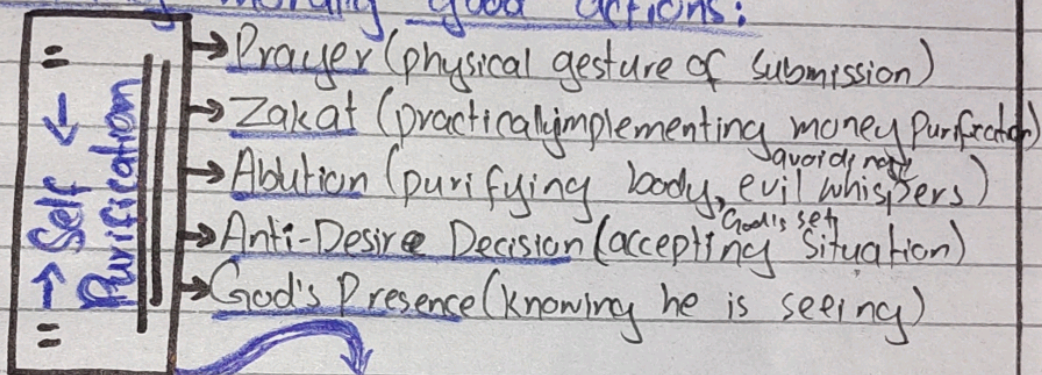 morally good actions:
= → Prayer (physical gesture of submission)
→ Zakat (practically implementing money purification)
→ Ablution (purifying body, avoiding evil whispers)
→ Anti-Desire Decision (accepting God's set situation)
→ God's Presence (knowing he is seeing)
=
← Self →
Purification